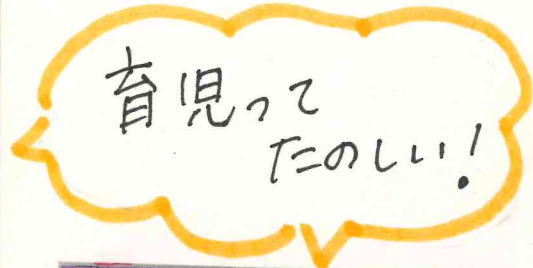 育児って
たのしい!